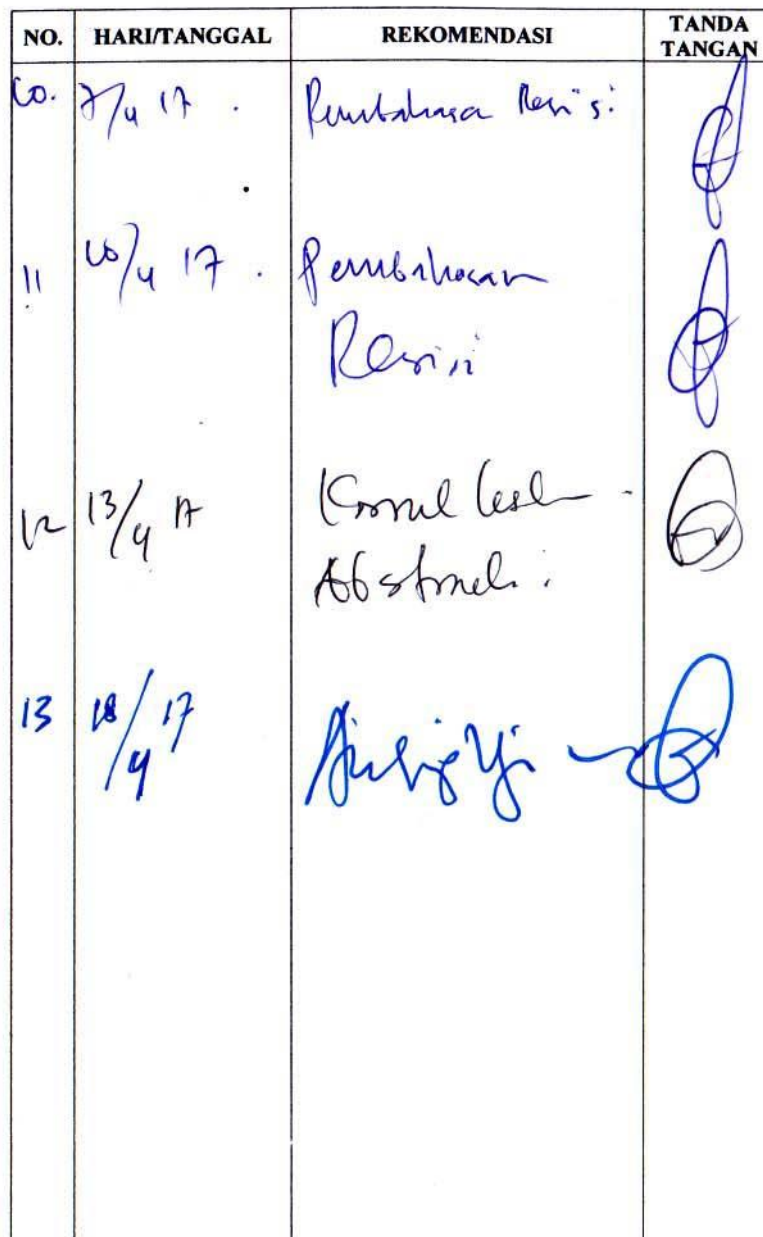 NO. HARI/TANGGAL REKOMENDASI TANDA TANGAN
10. 7/4 17. Pembahasan Revisi
11 10/4 17. Pembahasan
Revisi
12 13/4 17 Konsul
Abstrak.
13 18/4 17 Uji